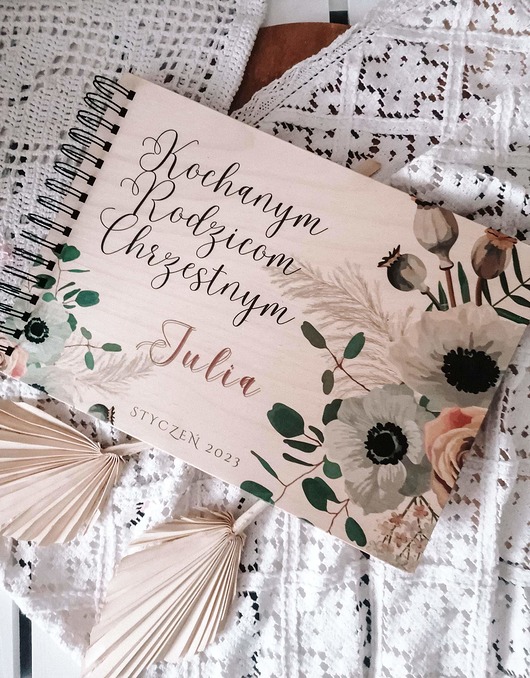 Kochanym
Rodzicom
Chrzestnym
Julia
STYCZEŃ 2023